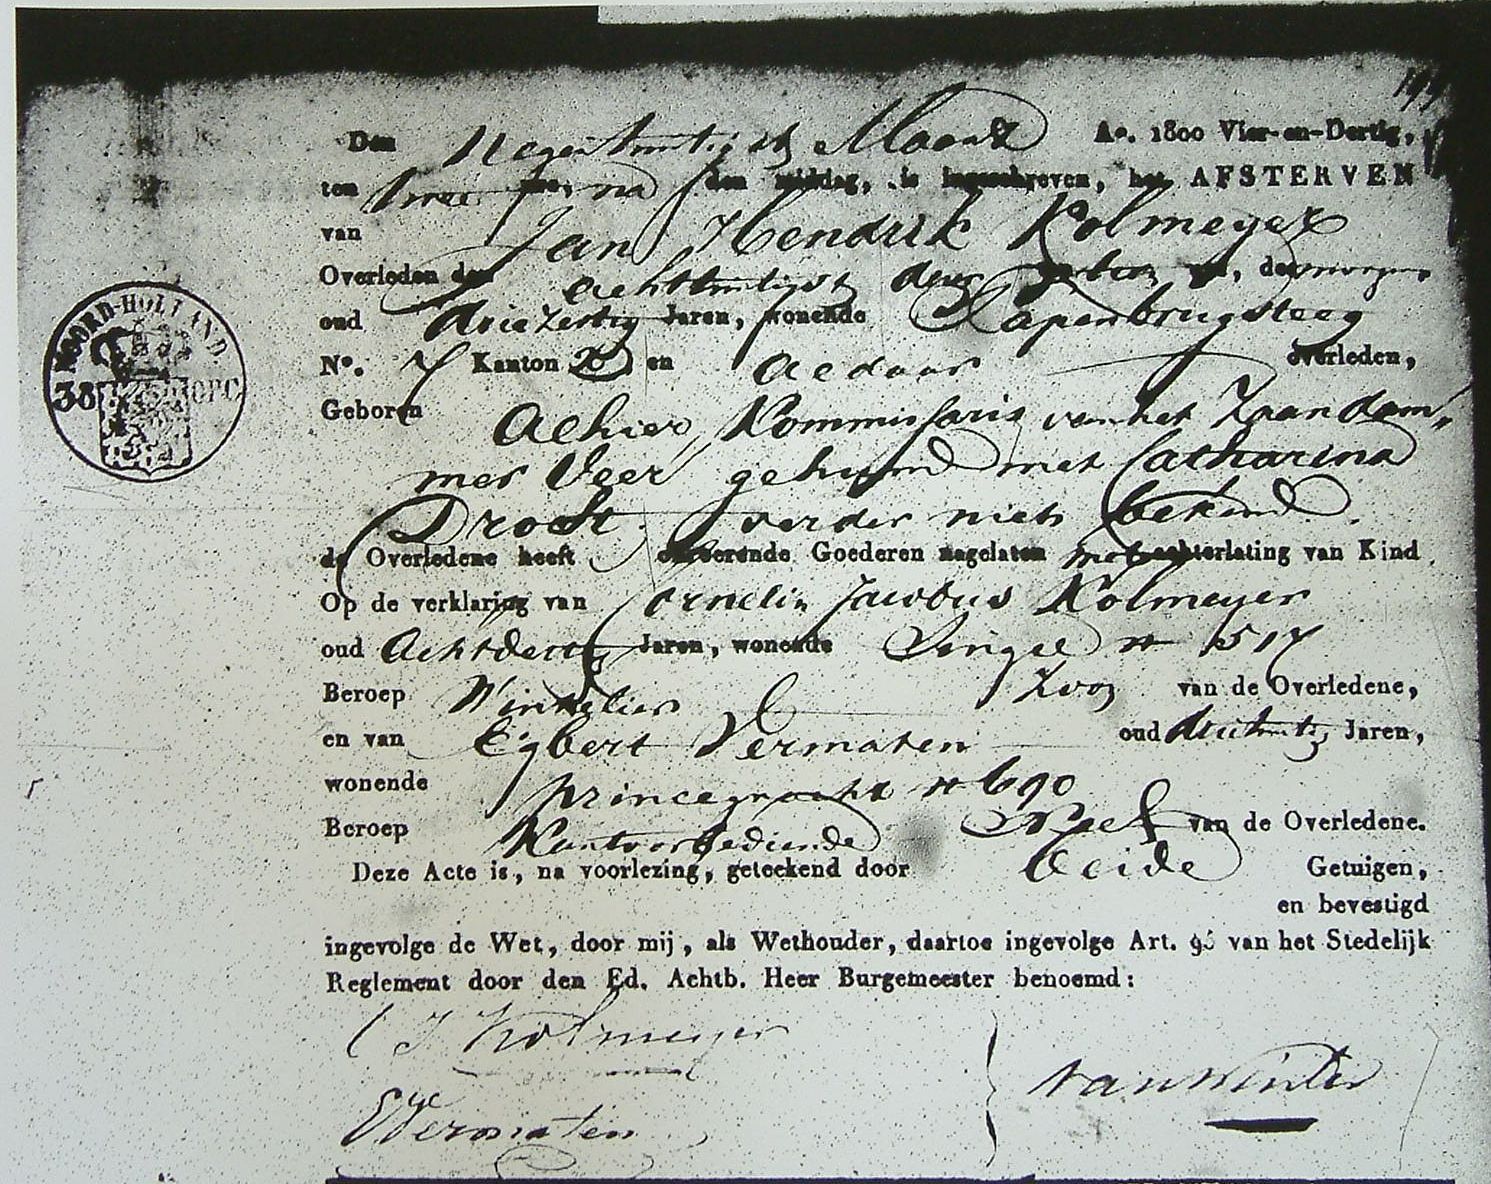 197
Den Negentwintigste Maart Ao. 1800 Vier-en-Dertig,
ten twee ure, na den middag, is ingeschreven, het AFSTERVEN
van Jan Hendrik Kolmeyer
Overleden den achttwintigste dezer ten ure, des morgens
oud driezestig Jaren, wonende Papenbrugsteeg
No. 7 Kanton en aldaar overleden,
Geboren Alhier, Kommissaris van het Zaandam„
mer Veer gehuwd met Catharina
Drost. verder niet bekend.
de Overledene heeft onroerende Goederen nagelaten met achterlating van Kind
Op de verklaring van Cornelis Jacobus Kolmeyer
oud Achtdertig Jaren, wonende Singel N 517
Beroep Winkelier Zoon van de Overledene,
en van Egbert Vermaten oud drietwintig Jaren,
wonende Princegracht N 690
Beroep Kantoorbediende Neef van de Overledene.
Deze Acte is, na voorlezing, geteekend door beide Getuigen,
en bevestigd
ingevolge de Wet, door mij, als Wethouder, daartoe ingevolge Art. 96 van het Stedelijk
Reglement door den Ed. Achtb. Heer Burgemeester benoemd:
C J Kolmeyer
van Winter
E Vermaten
NOORD-HOLLAND
38 10PC